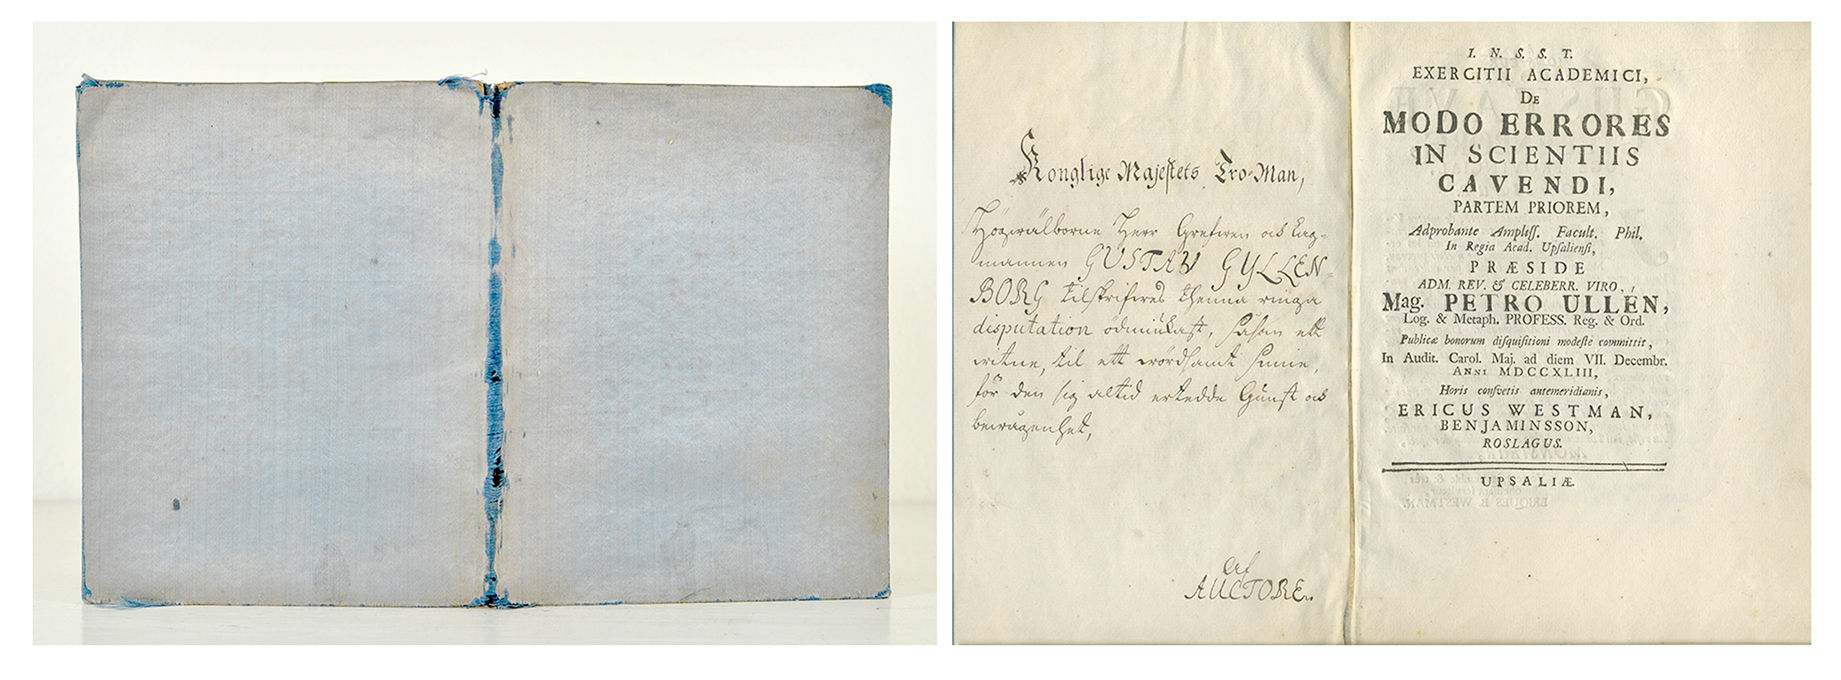 Konglige Majestets Tro-Man,
Högwälborne Herr Grefwen och Lag-
mannen GUSTAV GYLLEN-
BORG tilskrifwes thenna ringa
disputation ödmiukast, såsom ett
witne, til ett wördsamt sinne,
för den sig altid ertedde Gunst och
bewågenhet,
Af
AUCTORE.
I. N. S. S. T.
EXERCITII ACADEMICI,
DE
MODO ERRORES
IN SCIENTIIS
CAVENDI,
PARTEM PRIOREM,
Adprobante Ampliss. Facult. Phil.
In Regia Acad. Upsaliensi,
PRÆSIDE
ADM. REV. & CELEBERR. VIRO,
Mag. PETRO ULLEN,
Log. & Metaph. PROFESS. Reg. & Ord.
Publicæ bonorum disquisitioni modeste committit,
In Audit. Carol. Maj. ad diem VII. Decembr.
ANNI MDCCXLIII,
Horis consvetis antemeridianis,
ERICUS WESTMAN,
BENJAMINSSON,
ROSLAGUS.
UPSALIÆ.